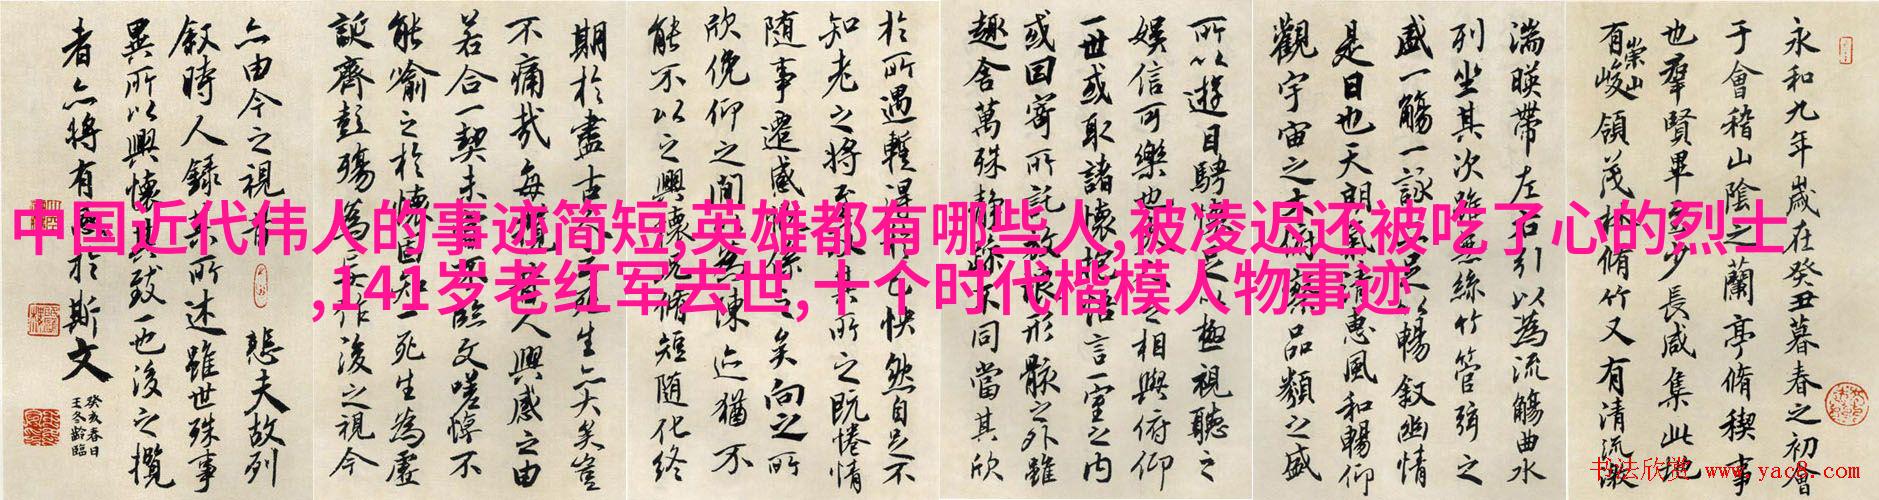 中国近代伟人的事迹简短,英雄都有哪些人,被凌迟还被吃了心的烈士
,141岁老红军去世,十个时代楷模人物事迹
永和九年歲在癸丑暮春之初會
于會稽山陰之蘭亭脩稧事
也羣賢畢至少長咸集此地
有崇山峻領茂林脩竹又有清流激
湍暎帶左右引以為流觴曲水
列坐其次雖無絲竹管弦之
盛一觴一詠亦足以暢敘幽情
是日也天朗氣清惠風和暢仰
觀宇宙之大俯察品類之盛
所以遊目騁懷足以極視聽之
娛信可樂也夫人之相與俯仰
一世或取諸懷抱悟言一室之內
或因寄所託放浪形骸之外雖
趣舍萬殊靜躁不同當其欣
於所遇暫得於己快然自足不
知老之將至及其所之既惓情
随事遷感慨係之矣向之所
欣俛仰之間以為陳迹猶不
能不以之興懷況脩短随化終
期於盡古人云死生亦大矣豈
不痛哉每攬昔人興感之由
若合一契未嘗不臨文嗟悼不
能喻之於懷固知一死生為虛
誕齊彭殤為妄作後之視今
亦由今之視昔 悲夫故列
敘時人錄其所述雖世殊事
異所以興懷其致一也後之攬
者亦將有感於斯文
癸亥春日
王冬齡臨
书法欣赏 www.yac8.com